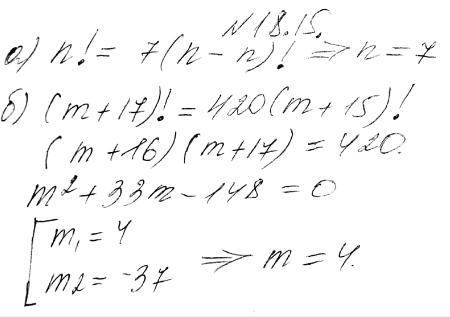 N18.15.
а) n! = 7(n-n)! ⇒ n = 7
б) (m+17)! = 420(m+15)!
(m+16)(m+17) = 420.
m² + 33m - 148 = 0
[m₁ = 4
m2 = -37 ⇒ m = 4.